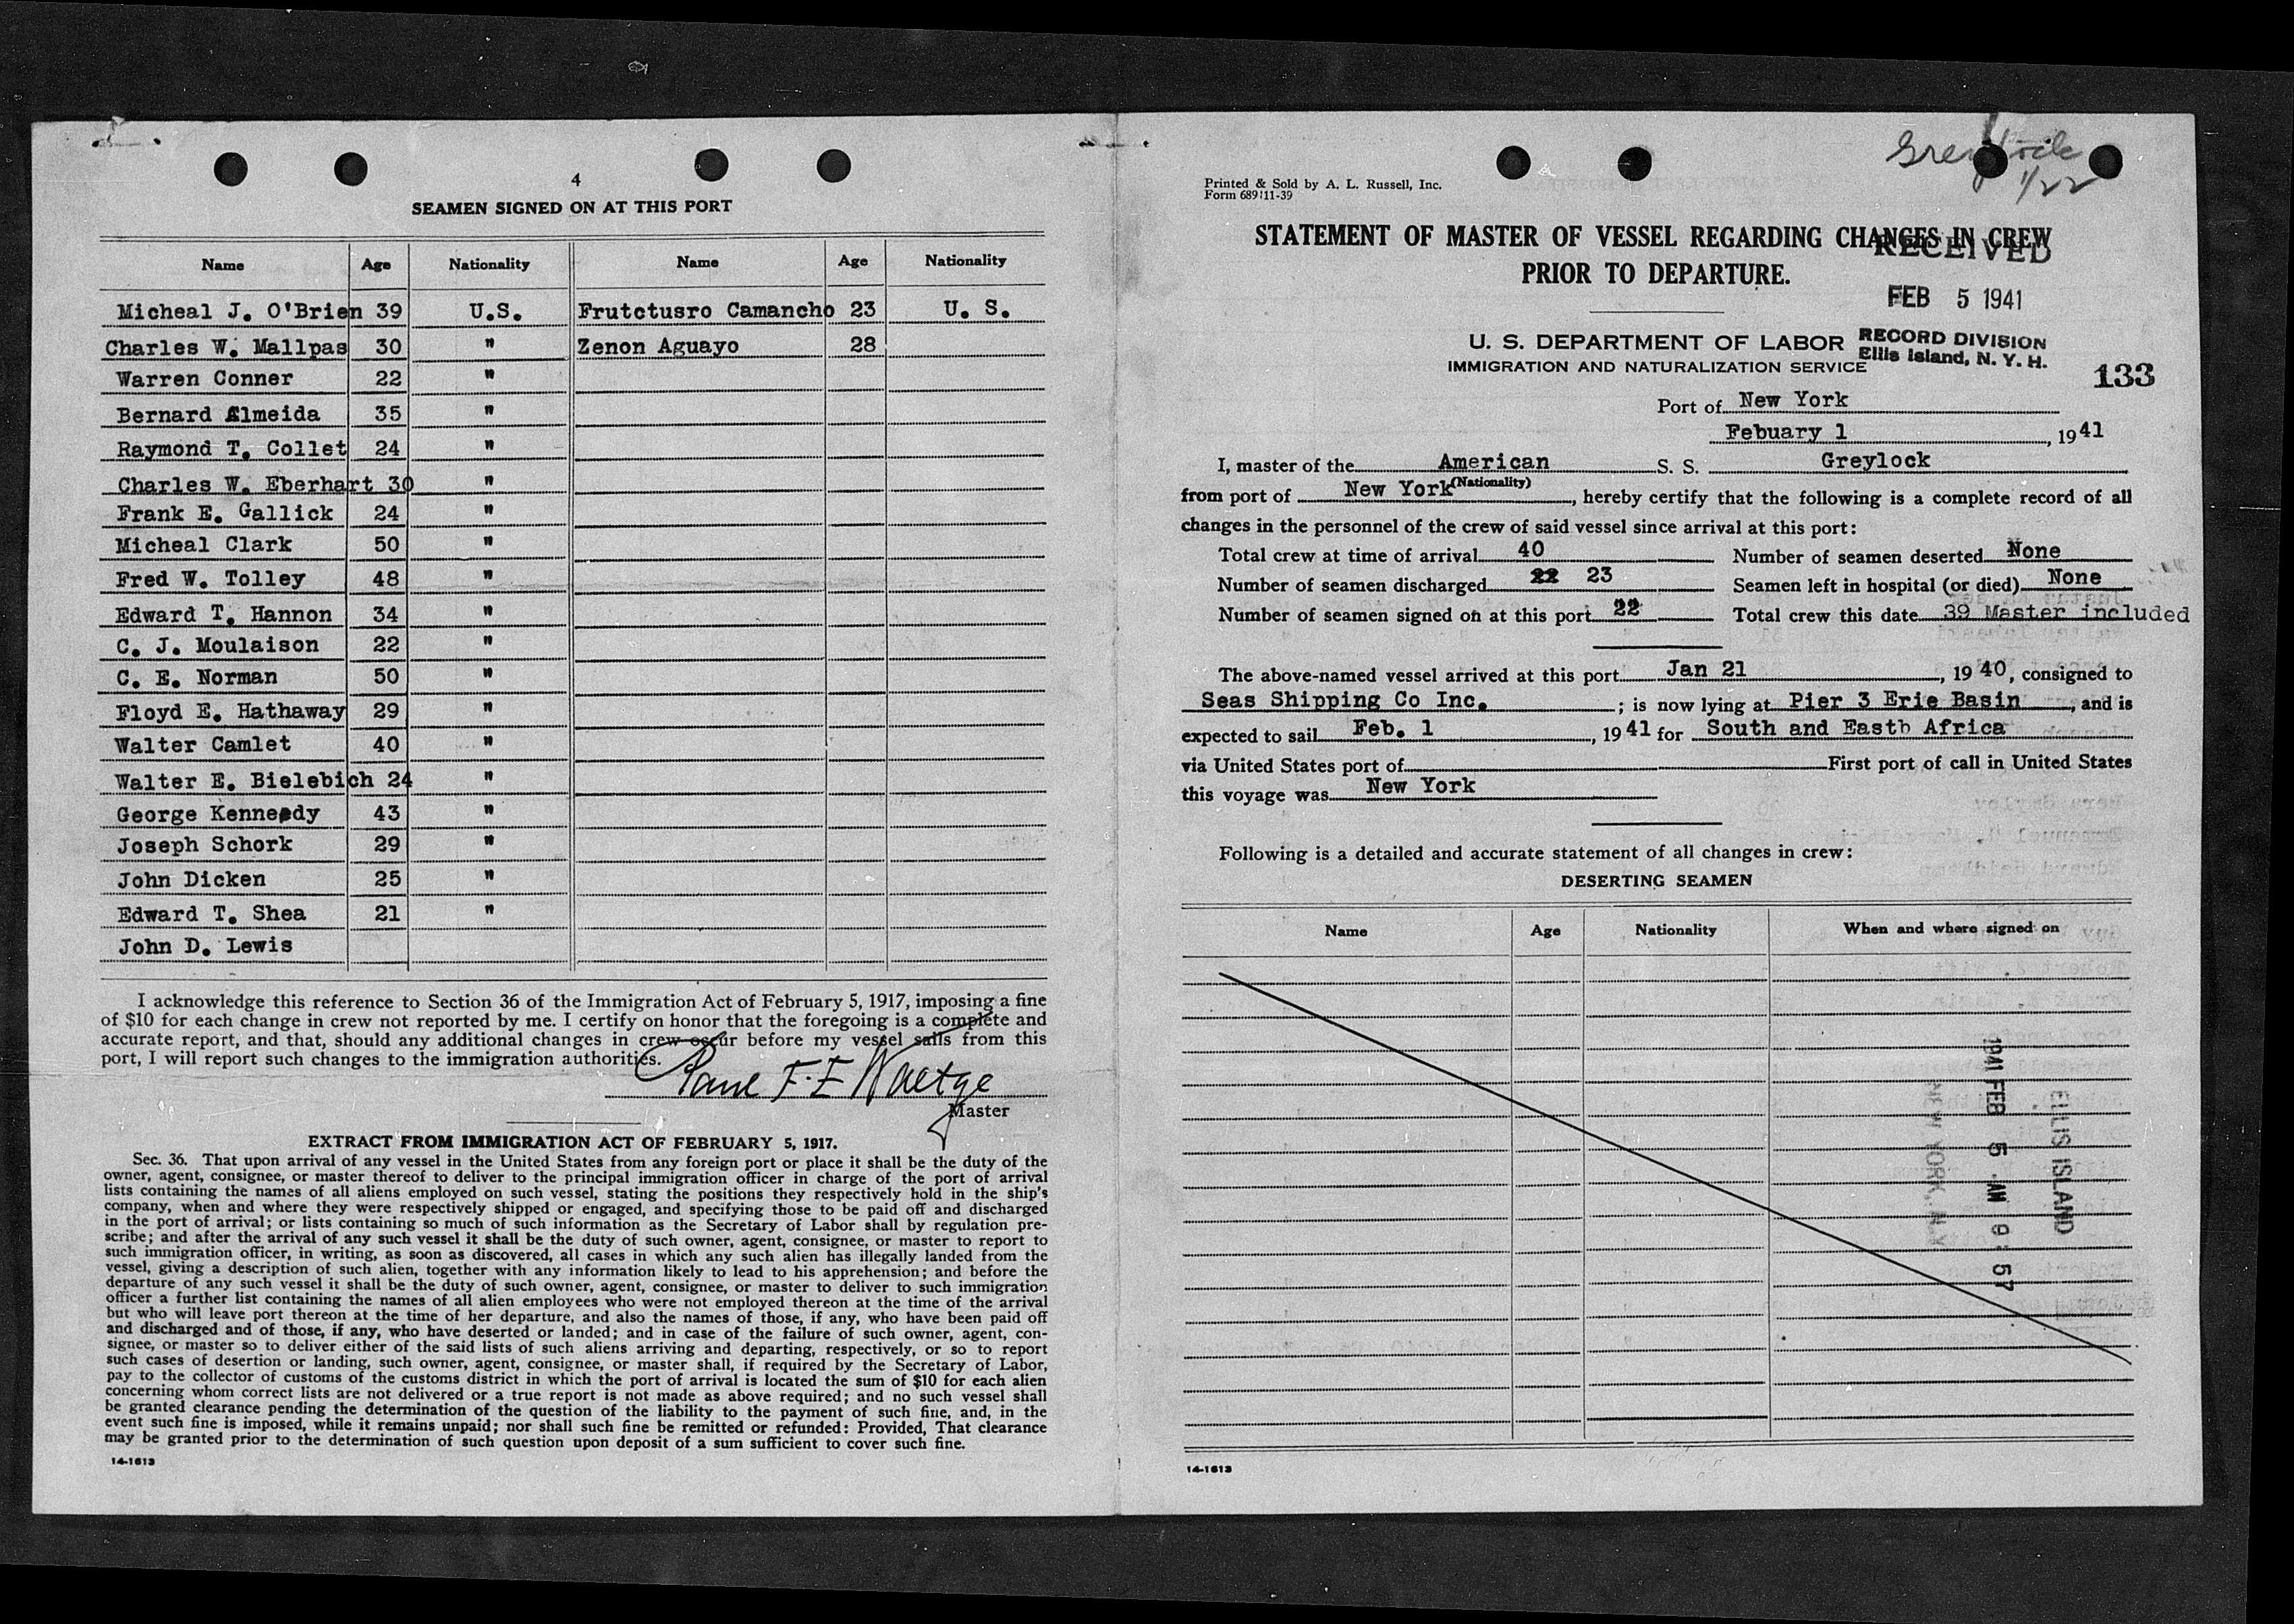 4
SEAMEN SIGNED ON AT THIS PORT
Name Age Nationality Name Age Nationality
Micheal J. O'Brien 39 U.S. Frutctusro Camancho 23 U. S.
Charles W. Mallpas 30 " Zenon Aguayo 28
Warren Conner 22 "
Bernard Almeida 35 "
Raymond T. Collet 24 "
Charles W. Eberhart 30 "
Frank E. Gallick 24 "
Micheal Clark 50 "
Fred W. Tolley 48 "
Edward T. Hannon 34 "
C. J. Moulaison 22 "
C. E. Norman 50 "
Floyd E. Hathaway 29 "
Walter Camlet 40 "
Walter E. Bielebich 24 "
George Kennedy 43 "
Joseph Schork 29 "
John Dicken 25 "
Edward T. Shea 21 "
John D. Lewis
I acknowledge this reference to Section 36 of the Immigration Act of February 5, 1917, imposing a fine
of $10 for each change in crew not reported by me. I certify on honor that the foregoing is a complete and
accurate report, and that, should any additional changes in crew occur before my vessel sails from this
port, I will report such changes to the immigration authorities.
F. E Waetge
Master
EXTRACT FROM IMMIGRATION ACT OF FEBRUARY 5, 1917.
Sec. 36. That upon arrival of any vessel in the United States from any foreign port or place it shall be the duty of the
owner, agent, consignee, or master thereof to deliver to the principal immigration officer in charge of the port of arrival
lists containing the names of all aliens employed on such vessel, stating the positions they respectively hold in the ship's
company, when and where they were respectively shipped or engaged, and specifying those to be paid off and discharged
in the port of arrival; or lists containing so much of such information as the Secretary of Labor shall by regulation pre-
scribe; and after the arrival of any such vessel it shall be the duty of such owner, agent, consignee, or master to report to
such immigration officer, in writing, as soon as discovered, all cases in which any such alien has illegally landed from the
vessel, giving a description of such alien, together with any information likely to lead to his apprehension; and before the
departure of any such vessel it shall be the duty of such owner, agent, consignee, or master to deliver to such immigration
officer a further list containing the names of all alien employees who were not employed thereon at the time of the arrival
but who will leave port thereon at the time of her departure, and also the names of those, if any, who have been paid off
and discharged and of those, if any, who have deserted or landed; and in case of the failure of such owner, agent, con-
signee, or master so to deliver either of the said lists of such aliens arriving and departing, respectively, or so to report
such cases of desertion or landing, such owner, agent, consignee, or master shall, if required by the Secretary of Labor,
pay to the collector of customs of the customs district in which the port of arrival is located the sum of $10 for each alien
concerning whom correct lists are not delivered or a true report is not made as above required; and no such vessel shall
be granted clearance pending the determination of the question of the liability to the payment of such fine, and, in the
event such fine is imposed, while it remains unpaid; nor shall such fine be remitted or refunded: Provided, That clearance
may be granted prior to the determination of such question upon deposit of a sum sufficient to cover such fine.
14-1613
1/22
Printed & Sold by A. L. Russell, Inc.
Form 689 11-39
STATEMENT OF MASTER OF VESSEL REGARDING CHANGES IN CREW
PRIOR TO DEPARTURE.
RECEIVED
FEB 5 1941
RECORD DIVISION
Ellis Island, N. Y. H.
U. S. DEPARTMENT OF LABOR
IMMIGRATION AND NATURALIZATION SERVICE
133
Port of New York
Febuary 1, 1941
I, master of the American S. S. Greylock
(Nationality)
from port of New York, hereby certify that the following is a complete record of all
changes in the personnel of the crew of said vessel since arrival at this port:
Total crew at time of arrival 40 Number of seamen deserted None
Number of seamen discharged 22 23 Seamen left in hospital (or died) None
Number of seamen signed on at this port 22 Total crew this date 39 Master included
The above-named vessel arrived at this port Jan 21, 1940, consigned to
Seas Shipping Co Inc. ; is now lying at Pier 3 Erie Basin, and is
expected to sail Feb. 1, 1941 for South and Eastb Africa
via United States port of First port of call in United States
this voyage was New York
Following is a detailed and accurate statement of all changes in crew:
DESERTING SEAMEN
Name Age Nationality When and where signed on
ELLIS ISLAND
1941 FEB 5 AM 9:57
NEW YORK, N.Y.
14-1613